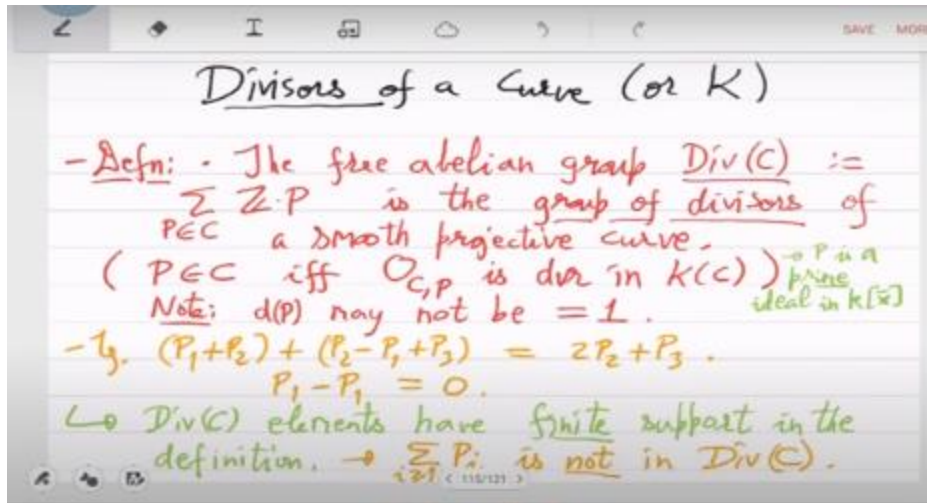 SAVE MORE
Divisors of a Curve (or K)
- Defn: · The free abelian group Div(C) :=
∑ ℤ·P is the group of divisors of
P∈C a smooth projective curve.
( P∈C iff O_{C,P} is dvr in K(C) ) → P is a
prime
Note: d(P) may not be = 1. ideal in k[x̄]
- Eg. (P₁+P₂) + (P₂-P₁+P₃) = 2P₂+P₃.
P₁-P₁ = 0.
↳ Div(C) elements have finite support in the
definition. → ∑ Pᵢ is not in Div(C).
i≥1 < 115/121 >